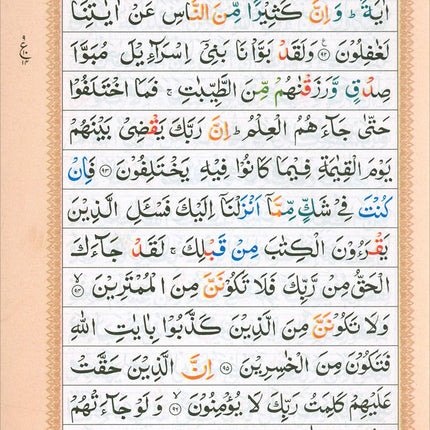 اٰيَةً ؕ وَاِنَّ كَثِيْرًا مِّنَ النَّاسِ عَنْ اٰيٰتِنَا
لَغٰفِلُوْنَ ۞۹۲ وَلَقَدْ بَوَّاْنَا بَنِيْۤ اِسْرَآءِيْلَ مُبَوَّاَ
صِدْقٍ وَّرَزَقْنٰهُمْ مِّنَ الطَّيِّبٰتِ ۚ فَمَا اخْتَلَفُوْا
حَتّٰى جَآءَهُمُ الْعِلْمُ ؕ اِنَّ رَبَّكَ يَقْضِيْ بَيْنَهُمْ
يَوْمَ الْقِيٰمَةِ فِيْمَا كَانُوْا فِيْهِ يَخْتَلِفُوْنَ ۞۹۳ فَاِنْ
كُنْتَ فِيْ شَكٍّ مِّمَّاۤ اَنْزَلْنَاۤ اِلَيْكَ فَسْـَٔلِ الَّذِيْنَ
يَقْرَءُوْنَ الْكِتٰبَ مِنْ قَبْلِكَ ۚ لَقَدْ جَآءَكَ
الْحَقُّ مِنْ رَّبِّكَ فَلَا تَكُوْنَنَّ مِنَ الْمُمْتَرِيْنَ ۙ۞۹۴
وَلَا تَكُوْنَنَّ مِنَ الَّذِيْنَ كَذَّبُوْا بِاٰيٰتِ اللّٰهِ
فَتَكُوْنَ مِنَ الْخٰسِرِيْنَ ۞۹۵ اِنَّ الَّذِيْنَ حَقَّتْ
عَلَيْهِمْ كَلِمَتُ رَبِّكَ لَا يُؤْمِنُوْنَ ۙ۞۹۶ وَلَوْ جَآءَتْهُمْ